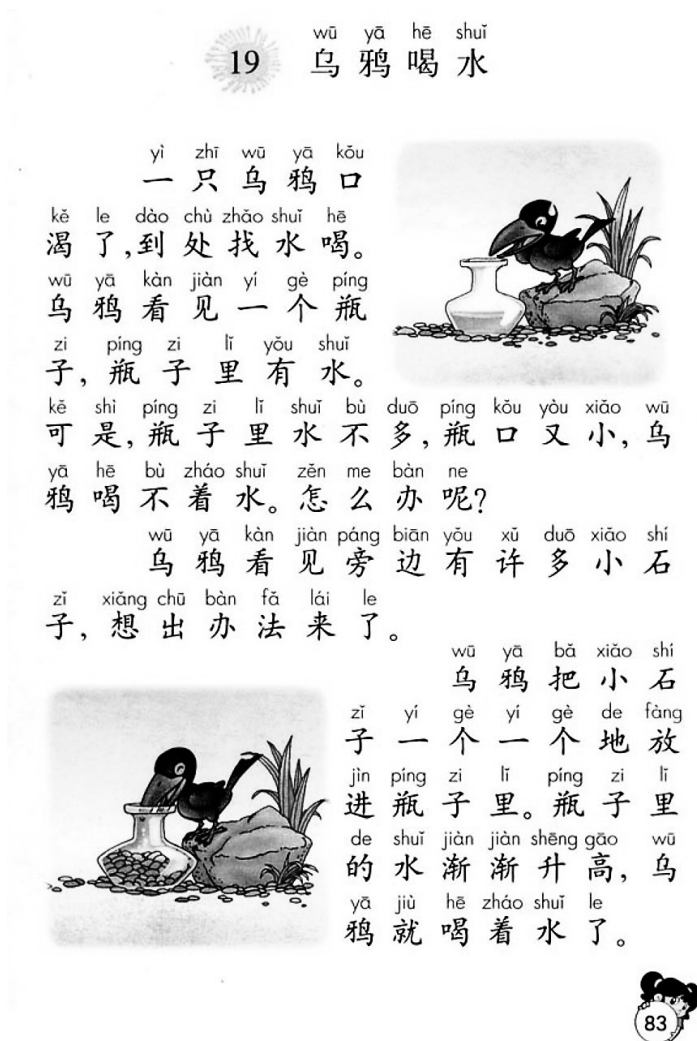 wū yā hē shuǐ
19 乌鸦喝水
yì zhī wū yā kǒu
一只乌鸦口
kě le dào chù zhǎo shuǐ hē
渴了,到处找水喝。
wū yā kàn jiàn yí gè píng
乌鸦看见一个瓶
zi píng zi lǐ yǒu shuǐ
子,瓶子里有水。
kě shì píng zi lǐ shuǐ bù duō píng kǒu yòu xiǎo wū
可是,瓶子里水不多,瓶口又小,乌
yā hē bù zháo shuǐ zěn me bàn ne
鸦喝不着水。怎么办呢?
wū yā kàn jiàn páng biān yǒu xǔ duō xiǎo shí
乌鸦看见旁边有许多小石
zǐ xiǎng chū bàn fǎ lái le
子,想出办法来了。
wū yā bǎ xiǎo shí
乌鸦把小石
zǐ yí gè yí gè de fàng
子一个一个地放
jìn píng zi lǐ píng zi lǐ
进瓶子里。瓶子里
de shuǐ jiàn jiàn shēng gāo wū
的水渐渐升高,乌
yā jiù hē zháo shuǐ le
鸦就喝着水了。
83